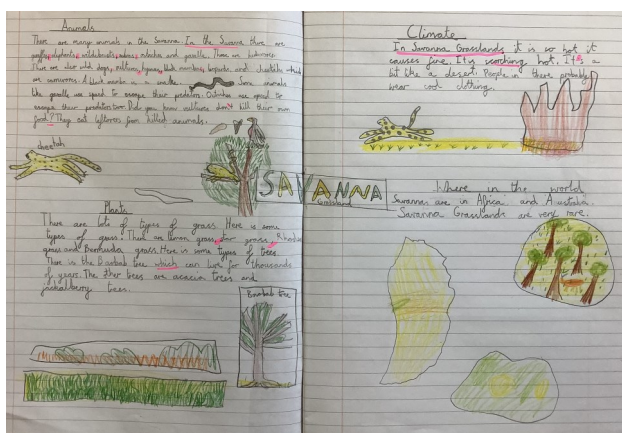 Animals
There are many animals in the Savanna. In the Savanna there are
giraffes, elephants, wildebeasts, zebras, ostriches and gazelle. These are herbivores.
There are also wild dogs, vultures, hyenas, black mambas, leopards and cheetahs which
are carnivores. A black mamba is a snake. Some animals
like gazelle use speed to escape their predators. Ostriches use speed to
escape their predators too. Did you know vultures don't kill their own
food? They eat leftovers from killed animals.
cheetah
SAVANNA
Grassland
Plants
There are lots of types of grass. Here is some
types of grass. There are lemon grass, star grass, Rhodes
grass and Bermuda grass. Here is some types of trees.
There is the Baobab tree which can live for thousands
of years. The other trees are acacia trees and
jackalberry trees.
Baobab tree
Climate
In Savanna Grasslands it is so hot it
causes fire. It's scorching hot. It is a
bit like a desert. People in there probably
wear cool clothing.
Where in the world
Savanna are in Africa and Australia.
Savanna Grasslands are very rare.